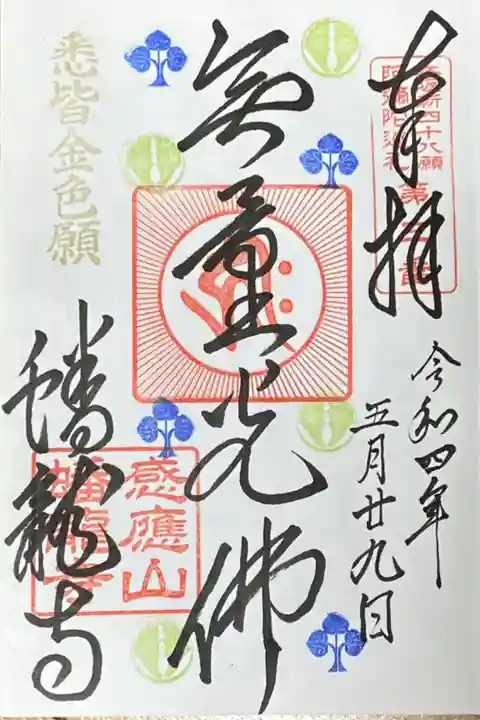 奉拝
令和四年
五月廿九日
無量光佛
悉皆金色願
蟠龍寺
感應山
蟠龍寺